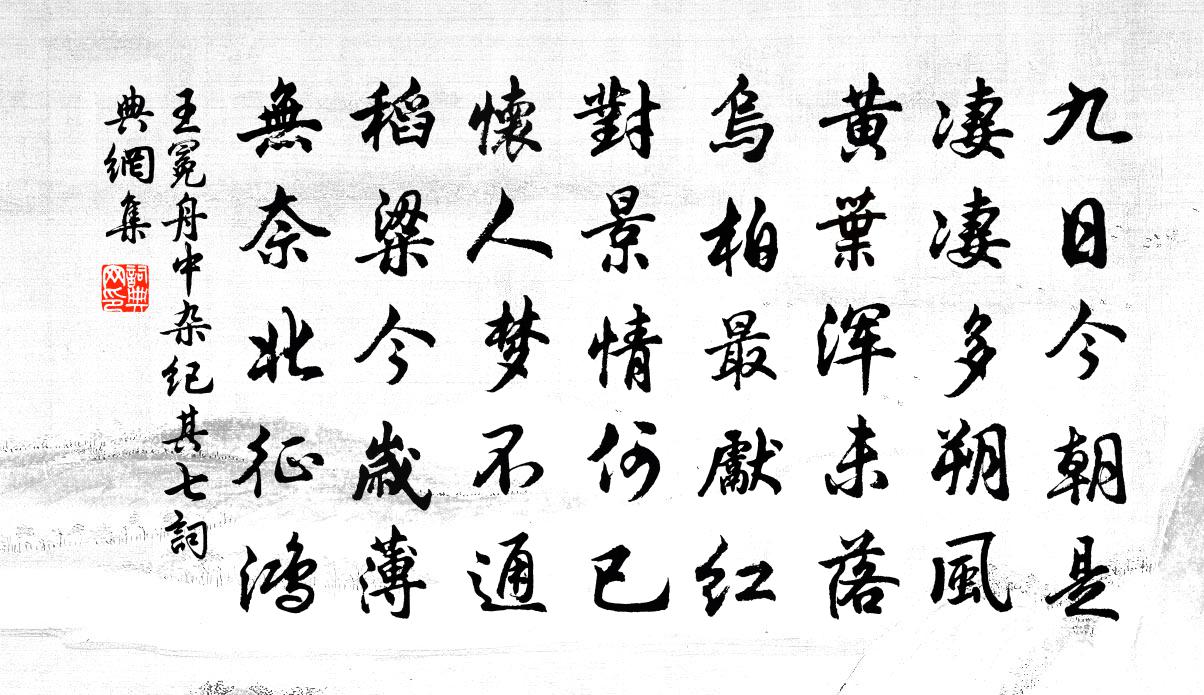 九日今朝是
凄凄多朔風
黄葉浑未落
烏柏最獻红
對景情何已
懷人梦不通
稻粱今歲薄
無奈北征鸿
王冕舟中杂纪其七詞
典網集
詞典
网印